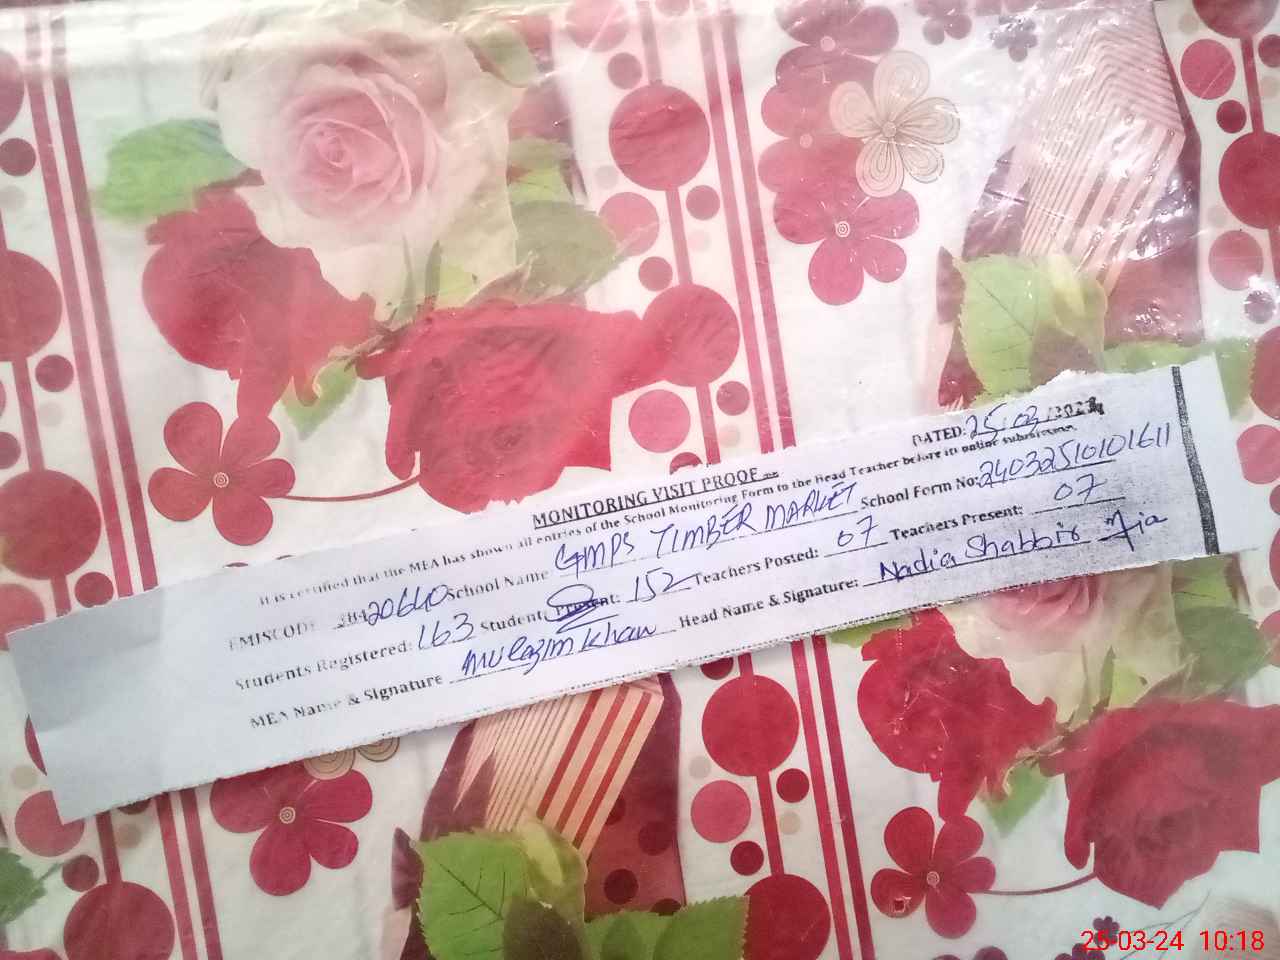 MONITORING VISIT PROOF
DATED: 25/03/2024
It is certified that the MEA has shown all entries of the School Monitoring Form to the Head Teacher before its online submission.
EMISCODE 38420640 School Name GMPS TIMBER MARKET School Form No: 24032510101611
Students Registered: 163 Students Present: 152 Teachers Posted: 07 Teachers Present: 07
MEA Name & Signature Mulazim Khan Head Name & Signature: Nadia Shabbir
25-03-24 10:18